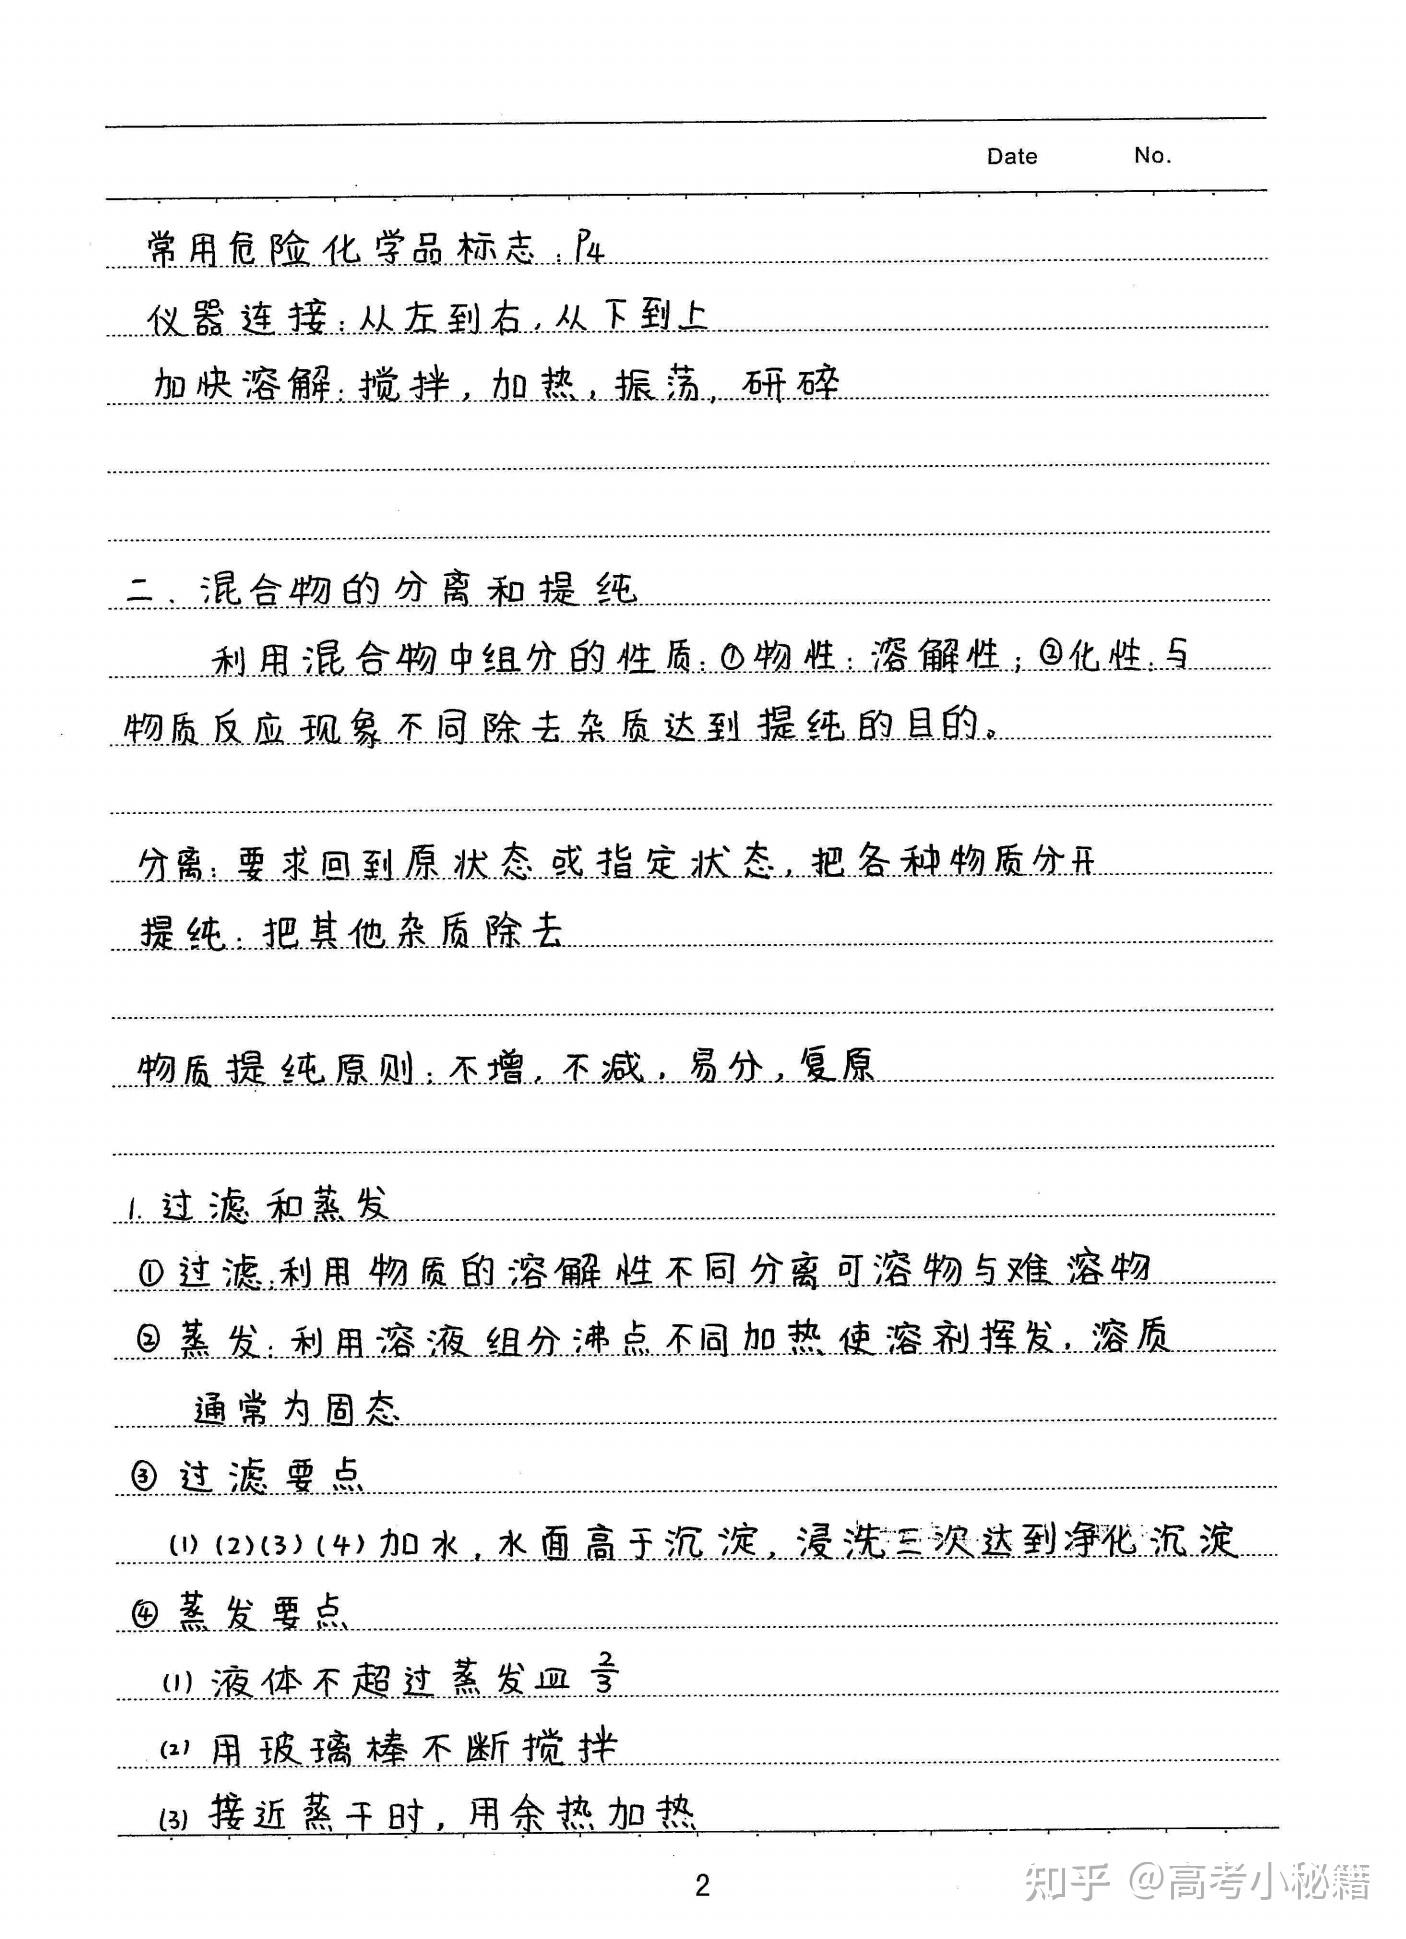 Date No.
常用危险化学品标志：P4
仪器连接：从左到右，从下到上
加快溶解：搅拌，加热，振荡，研碎
二．混合物的分离和提纯
利用混合物中组分的性质：①物性：溶解性；②化性：与
物质反应现象不同除去杂质达到提纯的目的。
分离：要求回到原状态或指定状态，把各种物质分开
提纯：把其他杂质除去
物质提纯原则：不增，不减，易分，复原
1.过滤和蒸发
①过滤：利用物质的溶解性不同分离可溶物与难溶物
②蒸发：利用溶液组分沸点不同加热使溶剂挥发，溶质
通常为固态
③过滤要点
(1)(2)(3)(4)加水，水面高于沉淀，浸洗三次达到净化沉淀
④蒸发要点
(1)液体不超过蒸发皿2/3
(2)用玻璃棒不断搅拌
(3)接近蒸干时，用余热加热
2
知乎 @高考小秘籍